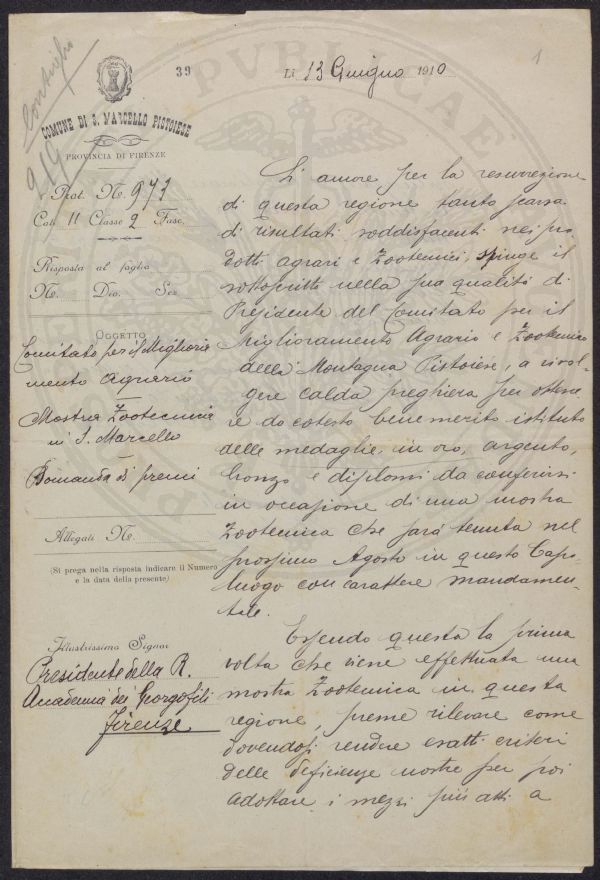 39
1
Lì 13 Giugno 1910
COMUNE DI S. MARCELLO PISTOIESE
PROVINCIA DI FIRENZE
919
Prot. N. 973
Cat. 11 Classe 2 Fasc.
Risposta al foglio
N. Div. Sez.
OGGETTO
Comitato per il Migliora
mento Agrario
Mostra Zootecnica
in S. Marcello
Domanda di premi
Allegati N.
(Si prega nella risposta indicare il Numero
e la data della presente)
Illustrissimo Signor
Presidente della R.
Accademia dei Georgofili
Firenze
L'amore per la resurrezione
di questa regione tanto scarsa
di risultati soddisfacenti nei pro
dotti agrari e zootecnici, spinge il
sottoscritto nella sua qualità di
Presidente del Comitato per il
Miglioramento Agrario e Zootecnico
della Montagna Pistoiese, a rivol-
gere calda preghiera per ottene
re da cotesto benemerito istituto
delle medaglie in oro, argento,
bronzo e diplomi da conferirsi
in occasione di una mostra
Zootecnica che sarà tenuta nel
prossimo Agosto in questo Capo-
luogo con carattere mandamen-
tale.
Essendo questa la prima
volta che viene effettuata una
mostra Zootecnica in questa
regione, preme rilevare come
dovendosi rendere esatti criteri
delle deficienze nostre per poi
adottare i mezzi più atti a